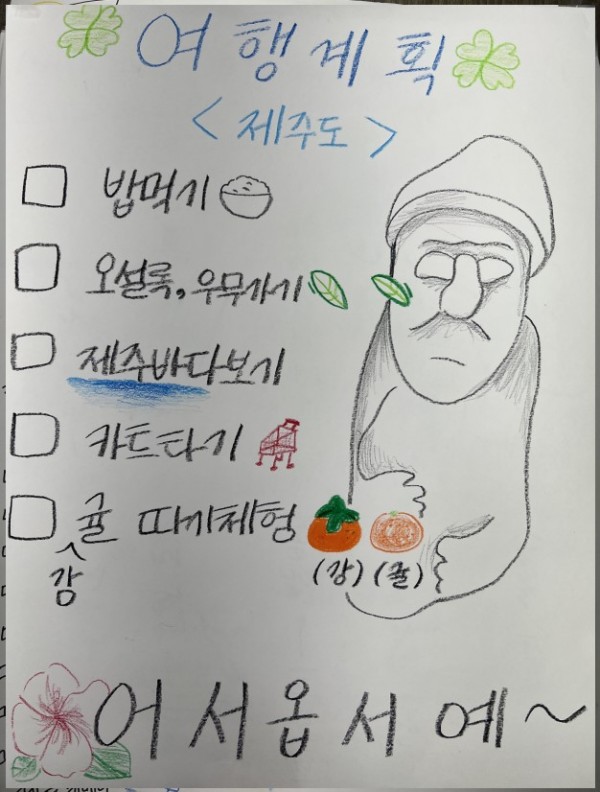 여행계획
<제주도>
밥먹기
오설록, 우무가기
제주바다보기
카트타기
귤 따기체험
감
(감) (귤)
어서옵서예~